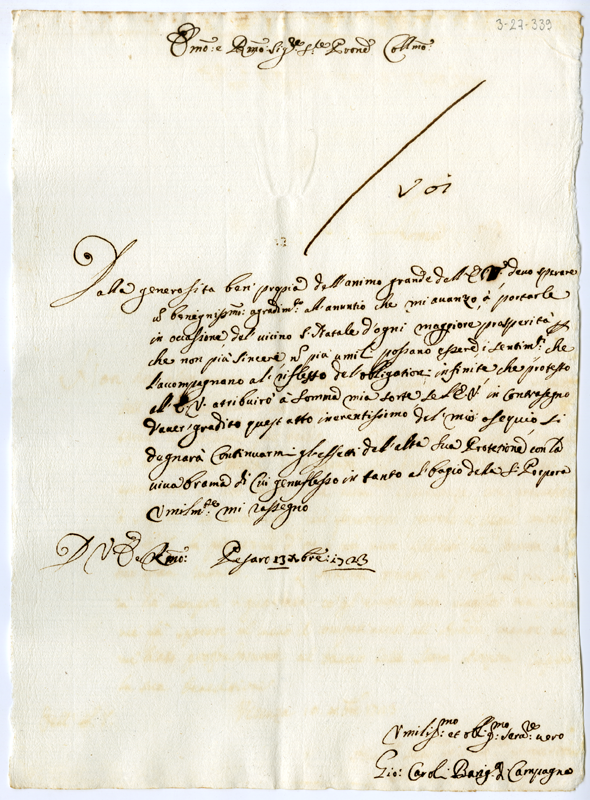 3-27-339
Em̃o: e Rm̃o: Sig.re S.re Prone Collmo:
Voi
Dalla generossita beni propia dell'animo grande dell'E. V. devo sperare
benegnissim: agradim.to all'anuntio che mi avanzo, à portarle
in occasione del vicino S. Natale d'ogni maggiore prosperità
che non più sincere nè più umil possano essere i sentim.ti che
l'acompagnano al riflesso del'obligation infinite che protesto
all'E. V. atribuirò à somma mia sorte se l'E. V. in contrasegno
d'aver gradito quest atto inerentissimo del mio osequio si
degnarà continuarmi gl'effetti dell'alta sua Protezione con la
viva brama di cui genuflesso in tanto al bagio dela S. Porpora
Umilm.te mi rassegno
D V E e Rm̃o: Pesaro 13 Xbre: 1723
Umilis.mo et obblig.mo Serv.re vero
Gio: Carol: Barig: di Campagna